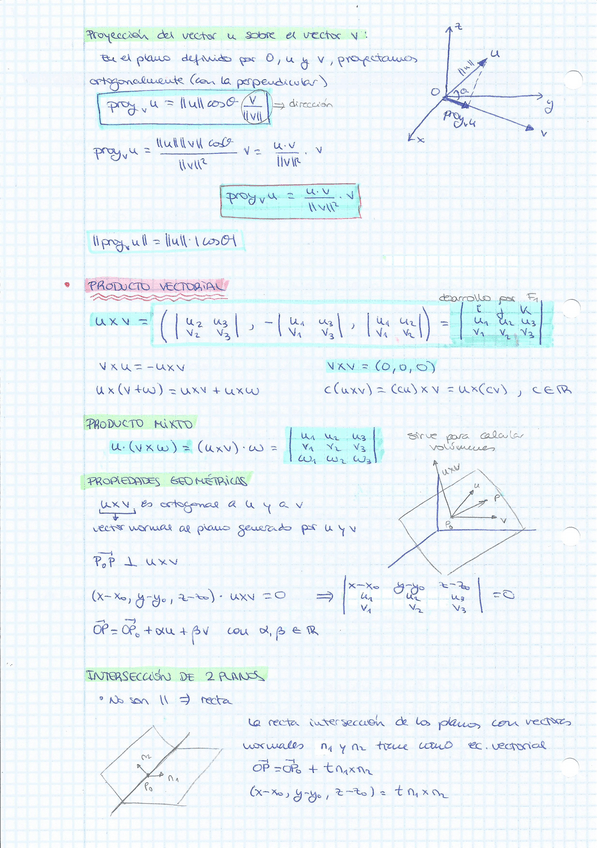 Proyección del vector u sobre el vector v:
En el plano definido por O, u y v, proyectamos
ortogonalmente (con la perpendicular)
proy_v u = ||u|| cos θ · v/||v|| ⇒ dirección
proy_v u = ||u|| ||v|| cos θ / ||v||² v = u·v/||v||² · v
proy_v u = u·v/||v||² · v
||proy_v u|| = ||u|| · |cos θ|
z
||u||
u
O
θ
y
proy_v u
v
x
• PRODUCTO VECTORIAL
desarrollo por F₁
u×v = ( | u₂ u₃ ; v₂ v₃ | , - | u₁ u₃ ; v₁ v₃ | , | u₁ u₂ ; v₁ v₂ | ) = | i j k ; u₁ u₂ u₃ ; v₁ v₂ v₃ |
v×u = -u×v v×v = (0,0,0)
u×(v+w) = u×v + u×w c(u×v) = (cu)×v = u×(cv) , c∈ℝ
PRODUCTO MIXTO
u·(v×w) = (u×v)·w = | u₁ u₂ u₃ ; v₁ v₂ v₃ ; w₁ w₂ w₃ |
sirve para calcular
volúmenes
PROPIEDADES GEOMÉTRICAS
u×v es ortogonal a u y a v
vector normal al plano generado por u y v
P₀P ⊥ u×v
u×v
u
P
P₀
v
(x-x₀, y-y₀, z-z₀) · u×v = 0 ⇒ | x-x₀ y-y₀ z-z₀ ; u₁ u₂ u₃ ; v₁ v₂ v₃ | = 0
OP = OP₀ + αu + βv con α, β ∈ ℝ
INTERSECCIÓN DE 2 PLANOS
• No son || ⇒ recta
La recta intersección de los planos con vectores
normales n₁ y n₂ tiene como ec. vectorial
OP = OP₀ + t n₁×n₂
(x-x₀, y-y₀, z-z₀) = t n₁×n₂
n₂
n₁
P₀